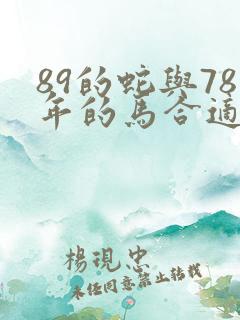 89的蛇與78
年的馬合適
楊現忠
未任同意禁止转载